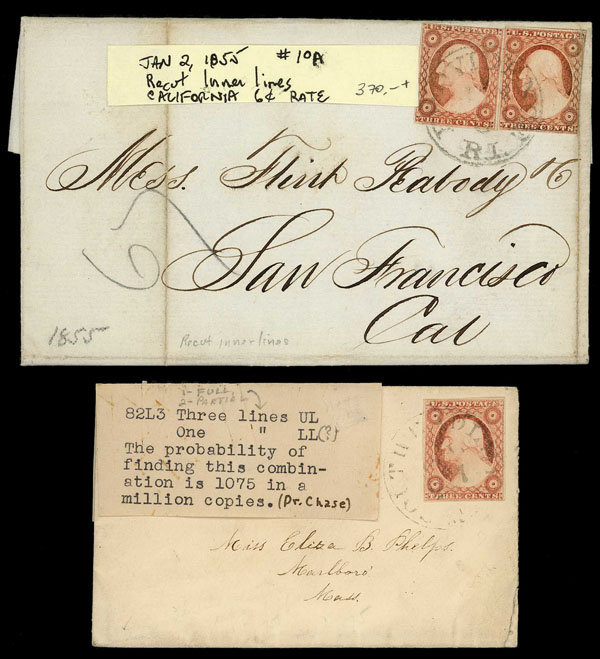 JAN 2, 1855 #10A
Recut Inner lines
CALIFORNIA 6¢ RATE 370,-+
U.S. POSTAGE U.S. POSTAGE
THREE CENTS THREE CENTS
R.I.
Mess. Flint Peabody & Co
San Francisco
Cal
1855
Recut inner lines
3-FULL
2-PARTIAL
82L3 Three lines UL
One " LL(?)
The probability of
finding this combin-
ation is 1075 in a
million copies. (Dr. Chase)
U.S. POSTAGE
THREE CENTS
Miss Eliza B. Phelps.
Marlboro'
Mass.